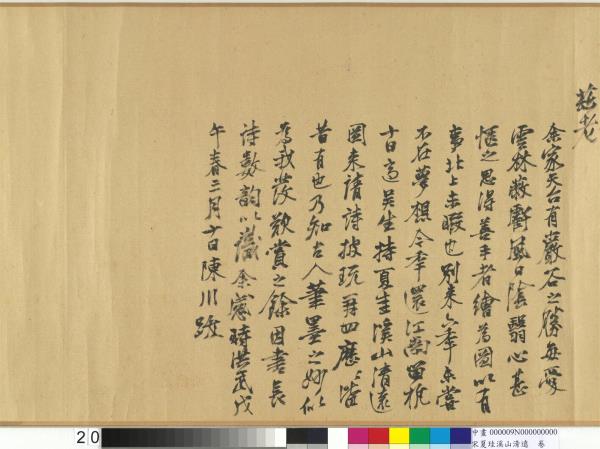 莊老
余家天台有巖谷之勝每愛
雲林數
風日陰翳心甚
惬之思得善手者繪為圖以有
事北上未暇也別來六年未嘗
不在夢想今年還江南留杭
十日適吳生持夏圭溪山清遠
圖來請詩披玩再四歷歷皆
昔有也乃知古人筆墨之妙以
為我發歎賞之餘因書長
詩數韵以識余寓時洪武戊
午春三月十日陳川跋
20
中畫 000009N000000000
宋夏珪溪山清遠 卷